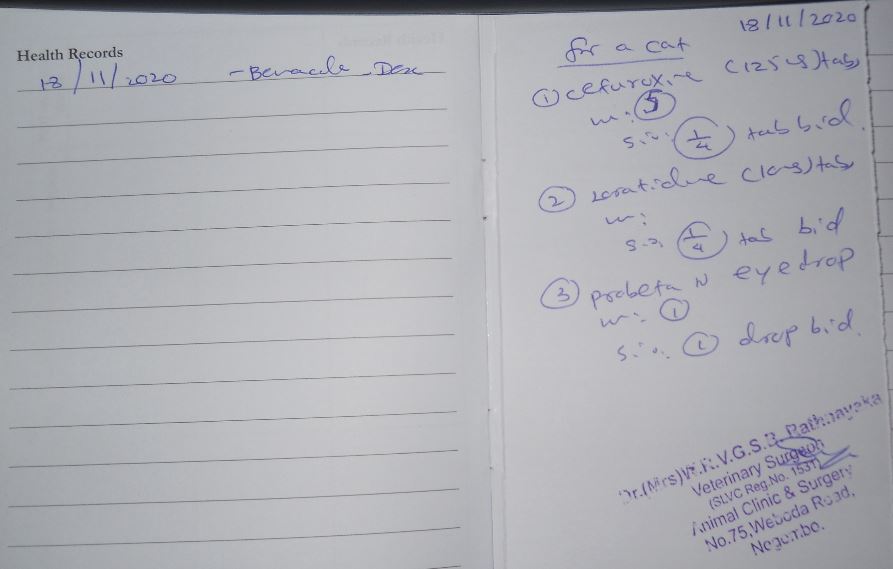 Health Records
18/11/2020 - Dex
18/11/2020
for a cat
① cefuroxime (125 mg) tab
m: ⑤
s: 1/4 tab bid.
② Loratidine (10mg) tab
m:
s: 1/4 tab bid
③ probeta N eye drop
m: ①
s: ① drop bid.
Dr.(Mrs) V.G.S.B. Rathnayaka
Veterinary Surgeon
(SLVC Reg.No. 1531)
Animal Clinic & Surgery
No.75, Weboda Road,
Negombo.